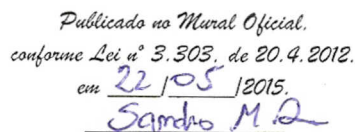 Publicado no Mural Oficial.
conforme Lei nº 3.303, de 20.4.2012.
em 22 / 05 /2015.
Sandro M